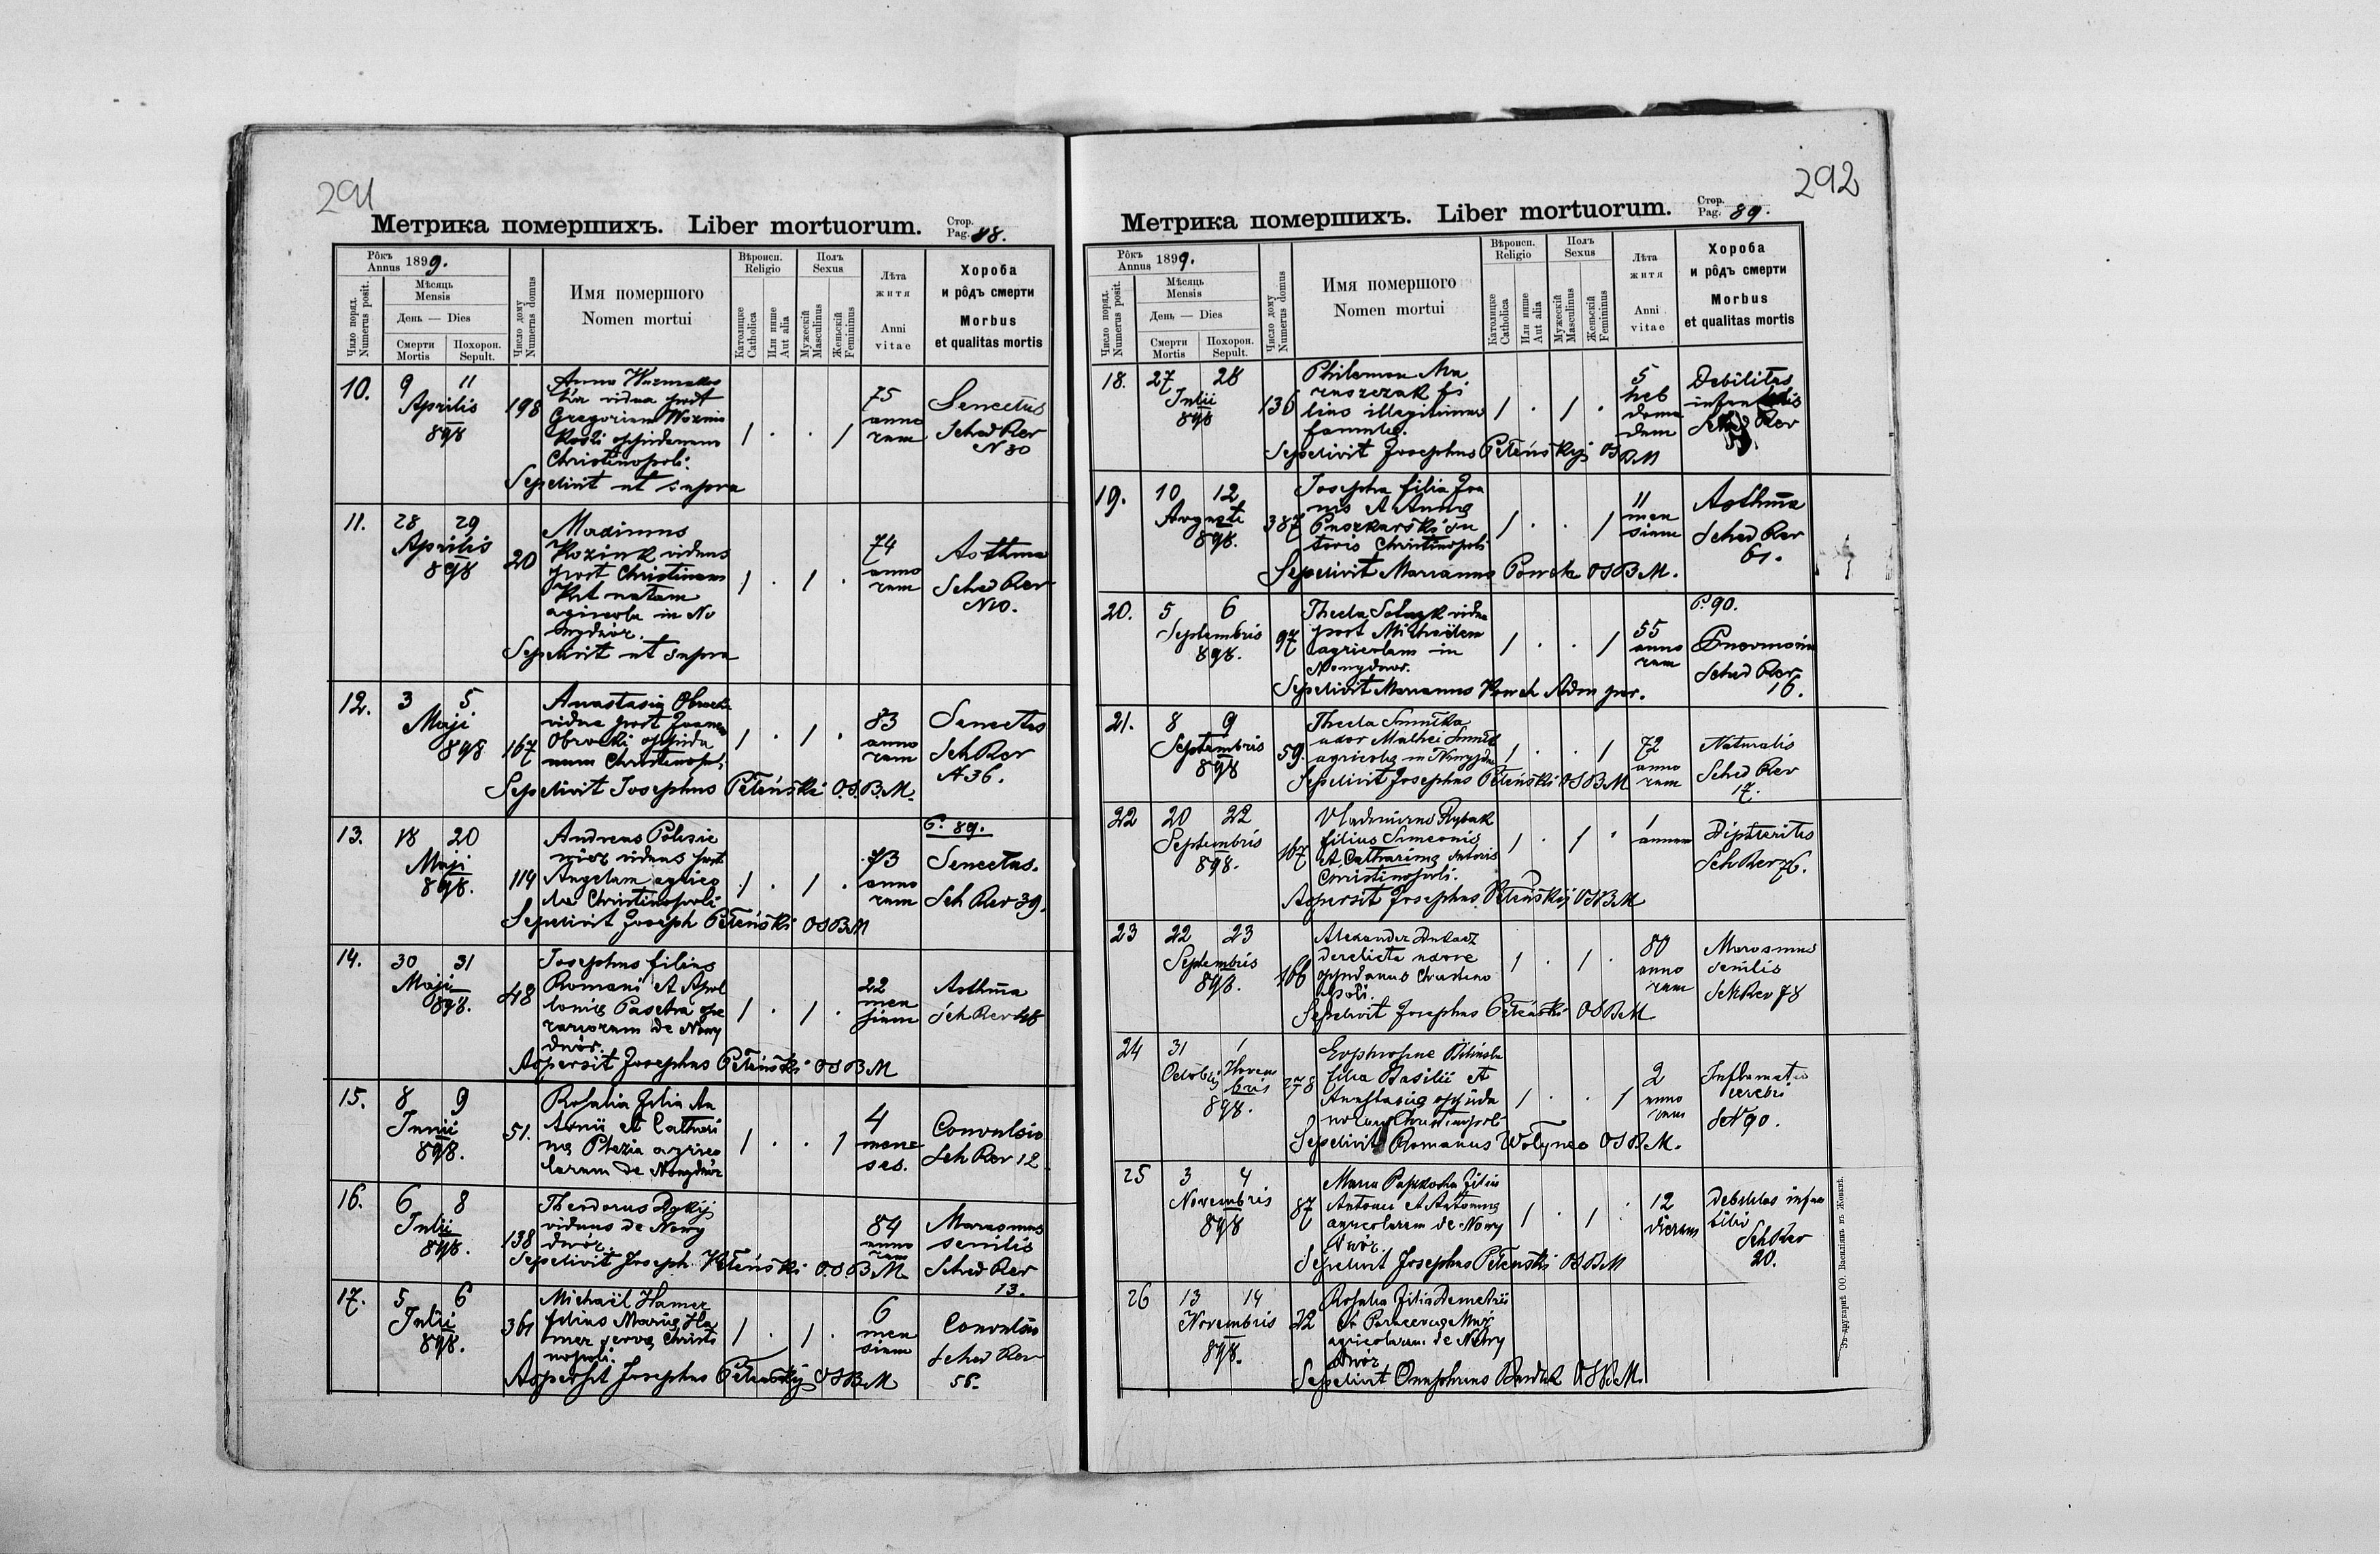 291
Метрика помершихъ. Liber mortuorum. Стор. Pag. 88.
Рôкъ Annus 1899.
Мѣсяць Mensis
День — Dies
Чило поряд. Numerus posit.
Смерти Mortis
Похорон. Sepult.
Число дому Numerus domus
Имя помершого
Nomen mortui
Вѣроисп. Religio
Католицке Catholica
Или инше Aut alia
Полъ Sexus
Мужескій Masculinus
Женьскій Femininus
Лѣта житя
Anni vitae
Хороба
и рôдъ смерти
Morbus
et qualitas mortis
10. 9 11 Aprilis 898 198
Anna
vidua post
Gregorium
Christinopoli.
Sepelivit ut supra
1 . . 1
75 annorum
Senectus
Sched Rev
N 30
11. 28 29 Aprilis 898 20
Maximus
viduus
post Christinam
natam
agricola in No
wydwór.
Sepelivit ut supra
1 . 1 .
74 annorum
Asthma
Sched Rev
N10.
12. 3 5 Maji 898 167
Anastasia
vidua post Joannem
Obrocki oppida
num Christinopoli
Sepelivit Josephus Peleński O.S.B.M.
1 . 1 .
83 annorum
Senectus
Sch Rev
N 36.
13. 18 20 Maji 898. 114
Andreas
viduus post
Angelam agrico
la Christinopoli
Sepelivit Joseph Peleński OSBM
1 . 1 .
73 annorum
P. 89.
Senectus.
Sch Rev 39.
14. 30 31 Maji 898. 48
Josephus filius
Romani et Apol
loniae
rariorum de Nowy
dwór.
Aspersit Josephus Peleński OSBM
1 . 1 .
22 mensium
Asthma
Sch Rev 48
15. 8 9 Junii 898. 51.
Rosalia filia An
tonii et Cathari
nae agrico
larum de Nowydwór
1 . . 1
4 menses.
Convulsio
Sch Rev 12
16. 6 8 Julii 898. 138
Theodorus
viduus de Nowy
dwór.
Sepelivit Joseph Peleński O.S.B.M.
84 annorum
Marasmus
senilis
Sched Rev
13.
17. 5 6 Julii 898. 361
Michaël Hamer
filius Mariae Ha
mer servae Christi
nopoli.
Aspersit Josephus Peleńskij OSBM
1 . 1 .
6 mensium
Convulsio
Sched Rev
56.
292
Метрика помершихъ. Liber mortuorum. Стор. Pag. 89.
Рôкъ Annus 1899.
Мѣсяць Mensis
День — Dies
Чило поряд. Numerus posit.
Смерти Mortis
Похорон. Sepult.
Число дому Numerus domus
Имя помершого
Nomen mortui
Вѣроисп. Religio
Католицке Catholica
Или инше Aut alia
Полъ Sexus
Мужескій Masculinus
Женьскій Femininus
Лѣта житя
Anni vitae
Хороба
и рôдъ смерти
Morbus
et qualitas mortis
18. 27 28 Julii 898 136
Philemon
fi
lius illegitimus
famulae.
Sepelivit Josephus Peleńskyj OSBM
1 . 1 .
5 hebdomadum
Debilitas
infantilis
Rev
19. 10 12 Augusti 898. 387
Josepha filia Joa
nis et Annae
Puszkarski su
toris Christinopoli
Sepelivit Marianus OSBM.
1 . . 1
11 mensium
Asthma
Sched Rev
61.
20. 5 6 Septembris 898. 97
Thecla vidua
post Michaëlem
agricolam in
Nowydwor.
Sepelivit Marianus Adm par.
1 . . 1
55 annorum
P. 90.
Pneumonia
Sched Rev
16.
21. 8 9 Septembris 898 59.
Thecla
uxor Mathei
agricolae in Nowydwor
Sepelivit Josephus Peleński OSBM
1 . . 1
72 annorum
Naturalis
Sched Rev
17.
22 20 22 Septembris 898. 167
Vladimirus Rybak
filius Simeonis
et Catharinae sutoris
Christinopoli.
Aspersit Josephus Peleńskij OSBM
1 . 1 .
1 annum
Dipteritis
Sch Rev 76.
23 22 23 Septembris 898. 166
Alexander
derelicta uxore
oppidanus Christino
poli.
Sepelivit Josephus Peleński OSBM
1 . 1 .
80 annorum
Marasmus
senilis
Sch Rev 78
24 31 Octobris 1 Novembris 898. 278
filia Basilii et
Anastasiae oppida
norum Christinopoli
Sepelivit Romanus Wołyniec OSBM.
1 . . 1
2 annorum
Inflamatio
cerebri
90.
25 3 4 Novembris 898 87
Maria filia
Antonii et Antoninae
agricolarum de Nowy
dwór.
Sepelivit Josephus Peleński OSBM
1 . 1 .
12 dierum
Debilitas infan
tilis
Sch Rev
20.
26 13 14 Novembris 898. 22
Rosalia filia Demetrii
et Parasceviae
agricolarum de Nowy
dwór
Sepelivit Onuphrius OSBM.
Зъ друкарнѣ ОО. Василіянъ въ Жовквѣ.